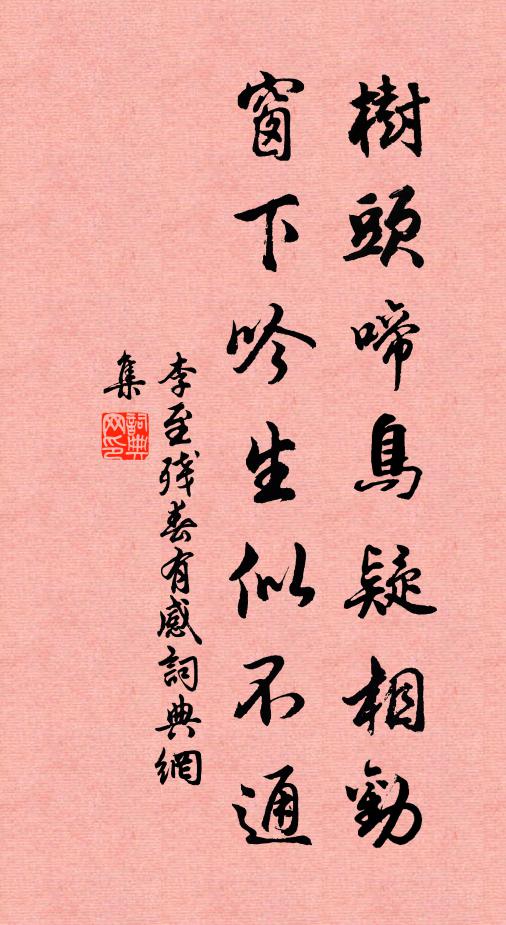 樹頭啼鳥疑相勸
窗下吟生似不通
李至殘春有感詞典網
集
詞典网印